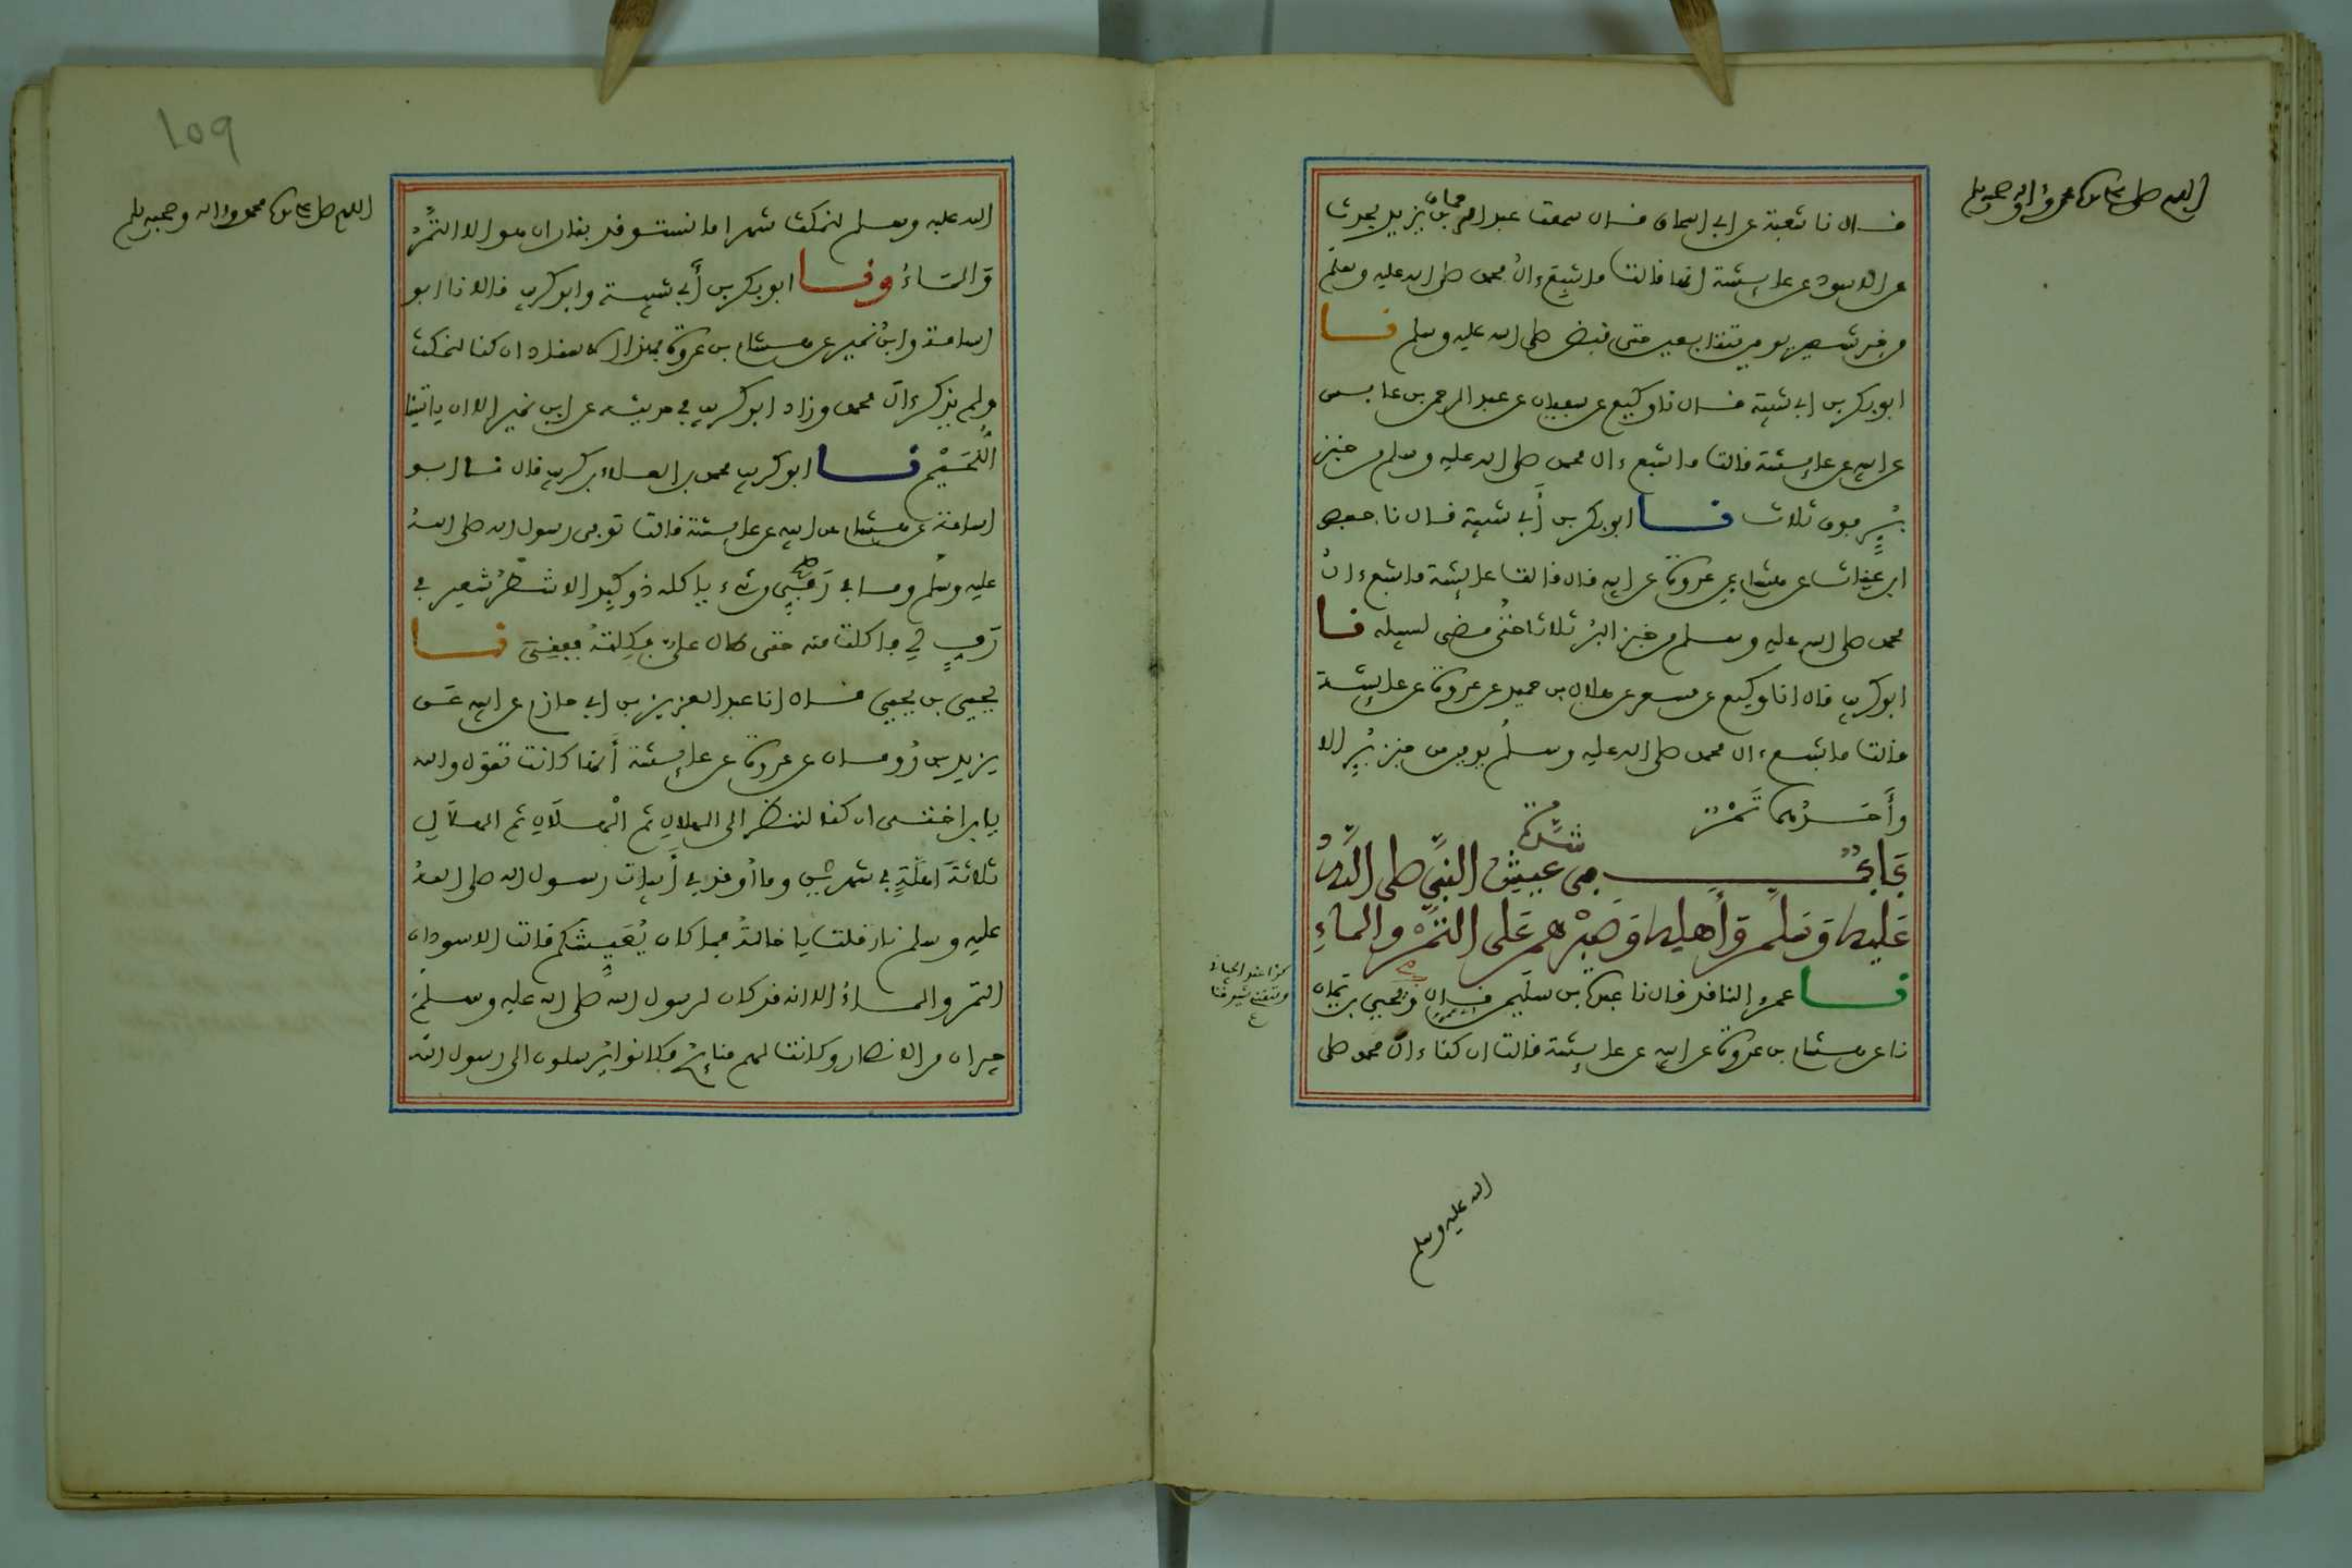 اللهم صل على سيدنا محمد وءاله وصحبه وسلم
قال نا شعبة عن ابي اسحاق قال سمعت عبد الرحمان بن يزيد يحدث
عن الاسود عن عايشة انها قالت ما شبع ءال محمد صلى الله عليه وسلم
من خبز شعير يومين متتابعين حتى قبض صلى الله عليه وسلم نا
ابو بكر بن ابي شيبة قال نا وكيع عن سفيان عن عبد الرحمن بن عابس
عن ابيه عن عايشة قالت ما شبع ءال محمد صلى الله عليه وسلم من خبز
بُرٍّ فوق ثلاث نا ابو بكر بن أبي شيبة قال نا حفص
ابن غياث عن هشام بن عروة عن ابيه قال قالت عايشة ما شبع ءال
محمد صلى الله عليه وسلم من خبز البُر ثلاثا حتى مضى لسبيله نا
ابو كريب قال نا وكيع عن مسعر عن هلال بن حميد عن عروة عن عايشة
قالت ما شبع ءال محمد صلى الله عليه وسلم يومين من خبز بُرٍّ الا
وأَحَدُهما تَمْرٌ
بَابُ شدة في عيش النبي صلى الله
عليه وسلم وأهله وصبرهم على التمر والماء
نا عمرو الناقد قال نا عبدة بن سليمن قال ويحيى بن يمان
نا عن هشام بن عروة عن ابيه عن عايشة قالت ان كنا ءال محمد صلى
الله عليه وسلم
109
اللهم صل على سيدنا محمد وءاله وصحبه وسلم
الله عليه وسلم لنمكث شهرا ما نستوقد بنار ان هو الا التمْرُ
وَالمَاءُ ونا ابو بكر بن أبي شيبة وابو كريب قالا نا ابو
اسامة وابن نمير عن هشام بن عروة بهذا الاسناد ان كنا لنمكث
ولم يذكر ءال محمد وزاد ابو كريب في حديثه عن ابن نمير الا ان ياتينا
اللُّحَيْم نا ابو كريب محمد بن العلاء بن كريب قال نا ابو
اسامة عن هشام عن ابيه عن عايشة قالت توفي رسول الله صلى الله
عليه وسلم وما في رَفِّي من شيء ياكله ذو كبد الا شطْرُ شعير في
رَفٍّ لي فاكلت منه حتى طال علي فكِلته ففني نا
يحيى بن يحيى قال انا عبد العزيز بن ابي حازم عن ابيه عن
يزيد بن رُومان عن عروة عن عايشة أنها كانت تقول والله
يابن اختي ان كنا لننظر الى الهلال ثم الْهلَال ثم الهلال
ثلاثةَ أهلَّةٍ في شهرين وما أُوقد في أبيات رسول الله صلى الله
عليه وسلم نار قلت يا خالة فما كان يُعَيِّشكم قالت الاسودان
التمر والماءُ الا انه قد كان لرسول الله صلى الله عليه وسلم
جيران من الانصار وكانت لهم منايح فكانوا يُرسلون الى رسول الله